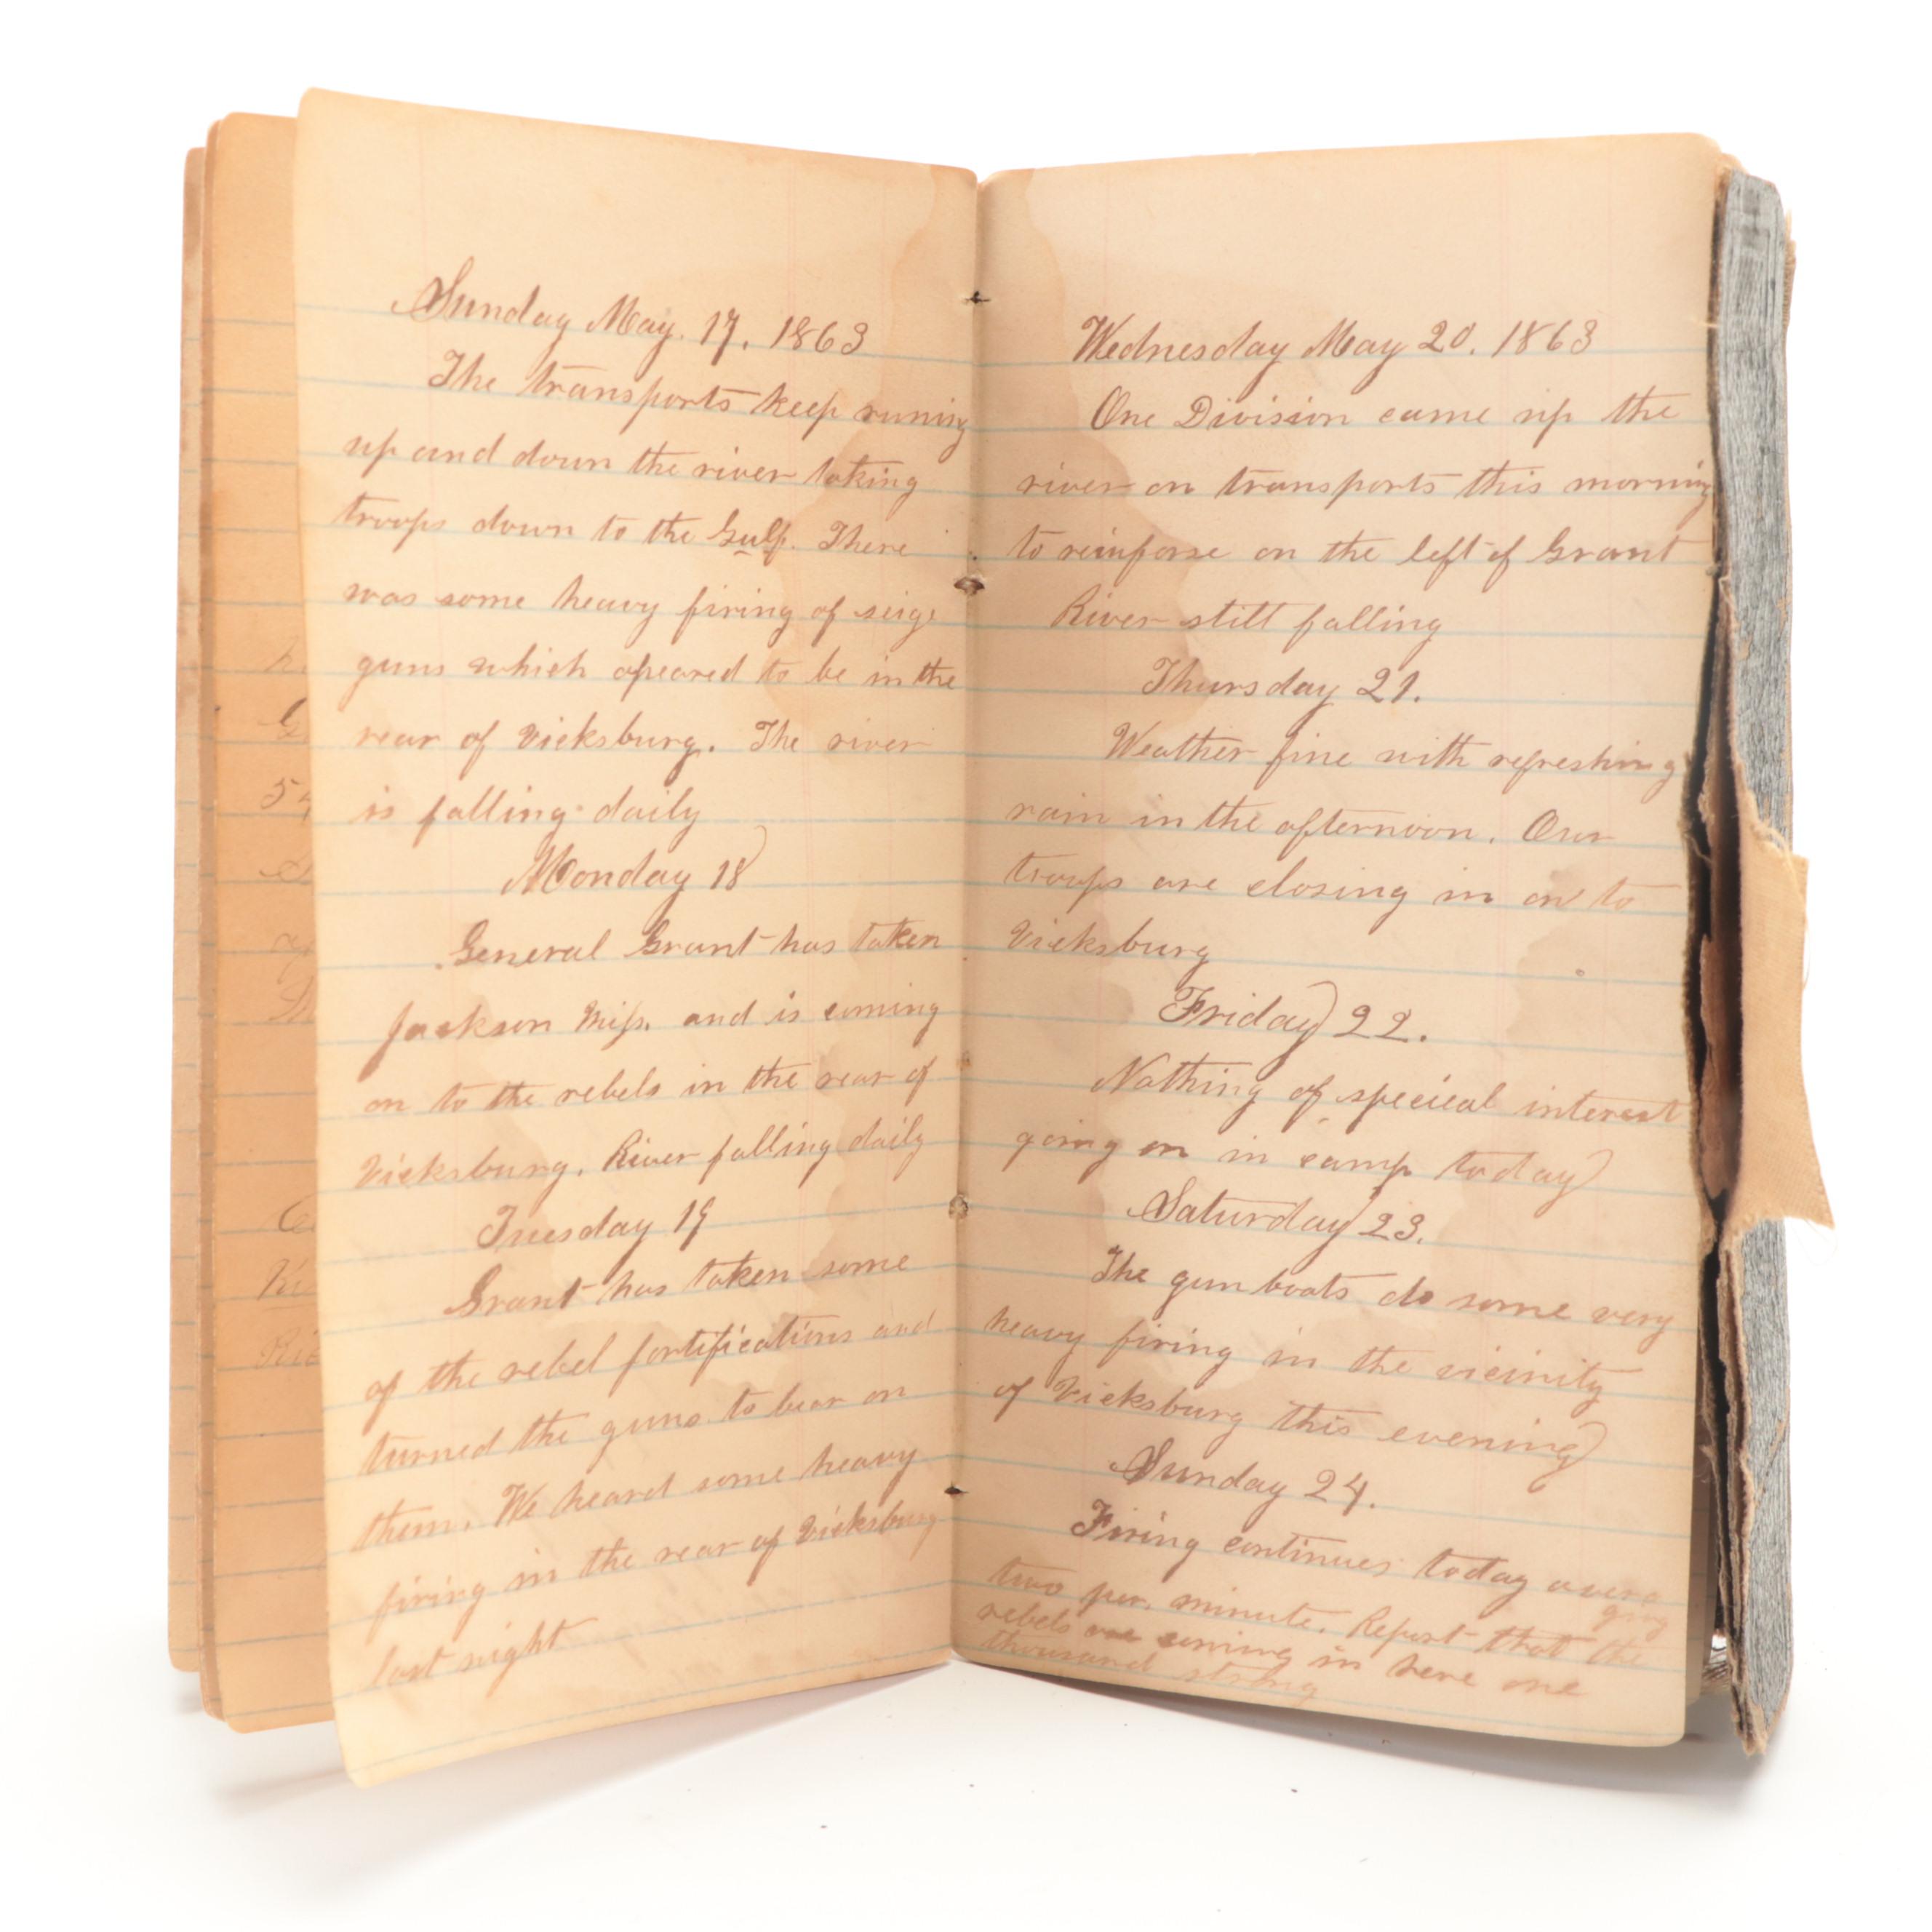 Sunday May. 17. 1863
The transports keep runing
up and down the river taking
troops down to the Gulf. There
was some heavy firing of seige
guns which apeared to be in the
rear of Vicksburg. The river
is falling daily
Monday 18
General Grant has taken
Jackson Miss. and is coming
on to the rebels in the rear of
Vicksburg. River falling daily
Tuesday 19
Grant has taken some
of the rebel fortifications and
turned the guns to bear on
them. We heard some heavy
firing in the rear of Vicksburg
last night
Wednesday May 20. 1863
One Division came up the
river on transports this morning
to reinforse on the left of Grant
River still falling
Thursday 21.
Weather fine with refreshing
rain in the afternoon. Our
troops are closing in on to
Vicksburg
Friday 22.
Nothing of specieal interest
going on in camp today
Saturday 23.
The gun boats do some very
heavy firing in the vicinity
of Vicksburg this evening
Sunday 24.
Firing continues today avera
ging
two per. minute. Report that the
rebels are coming in here one
thousand strong